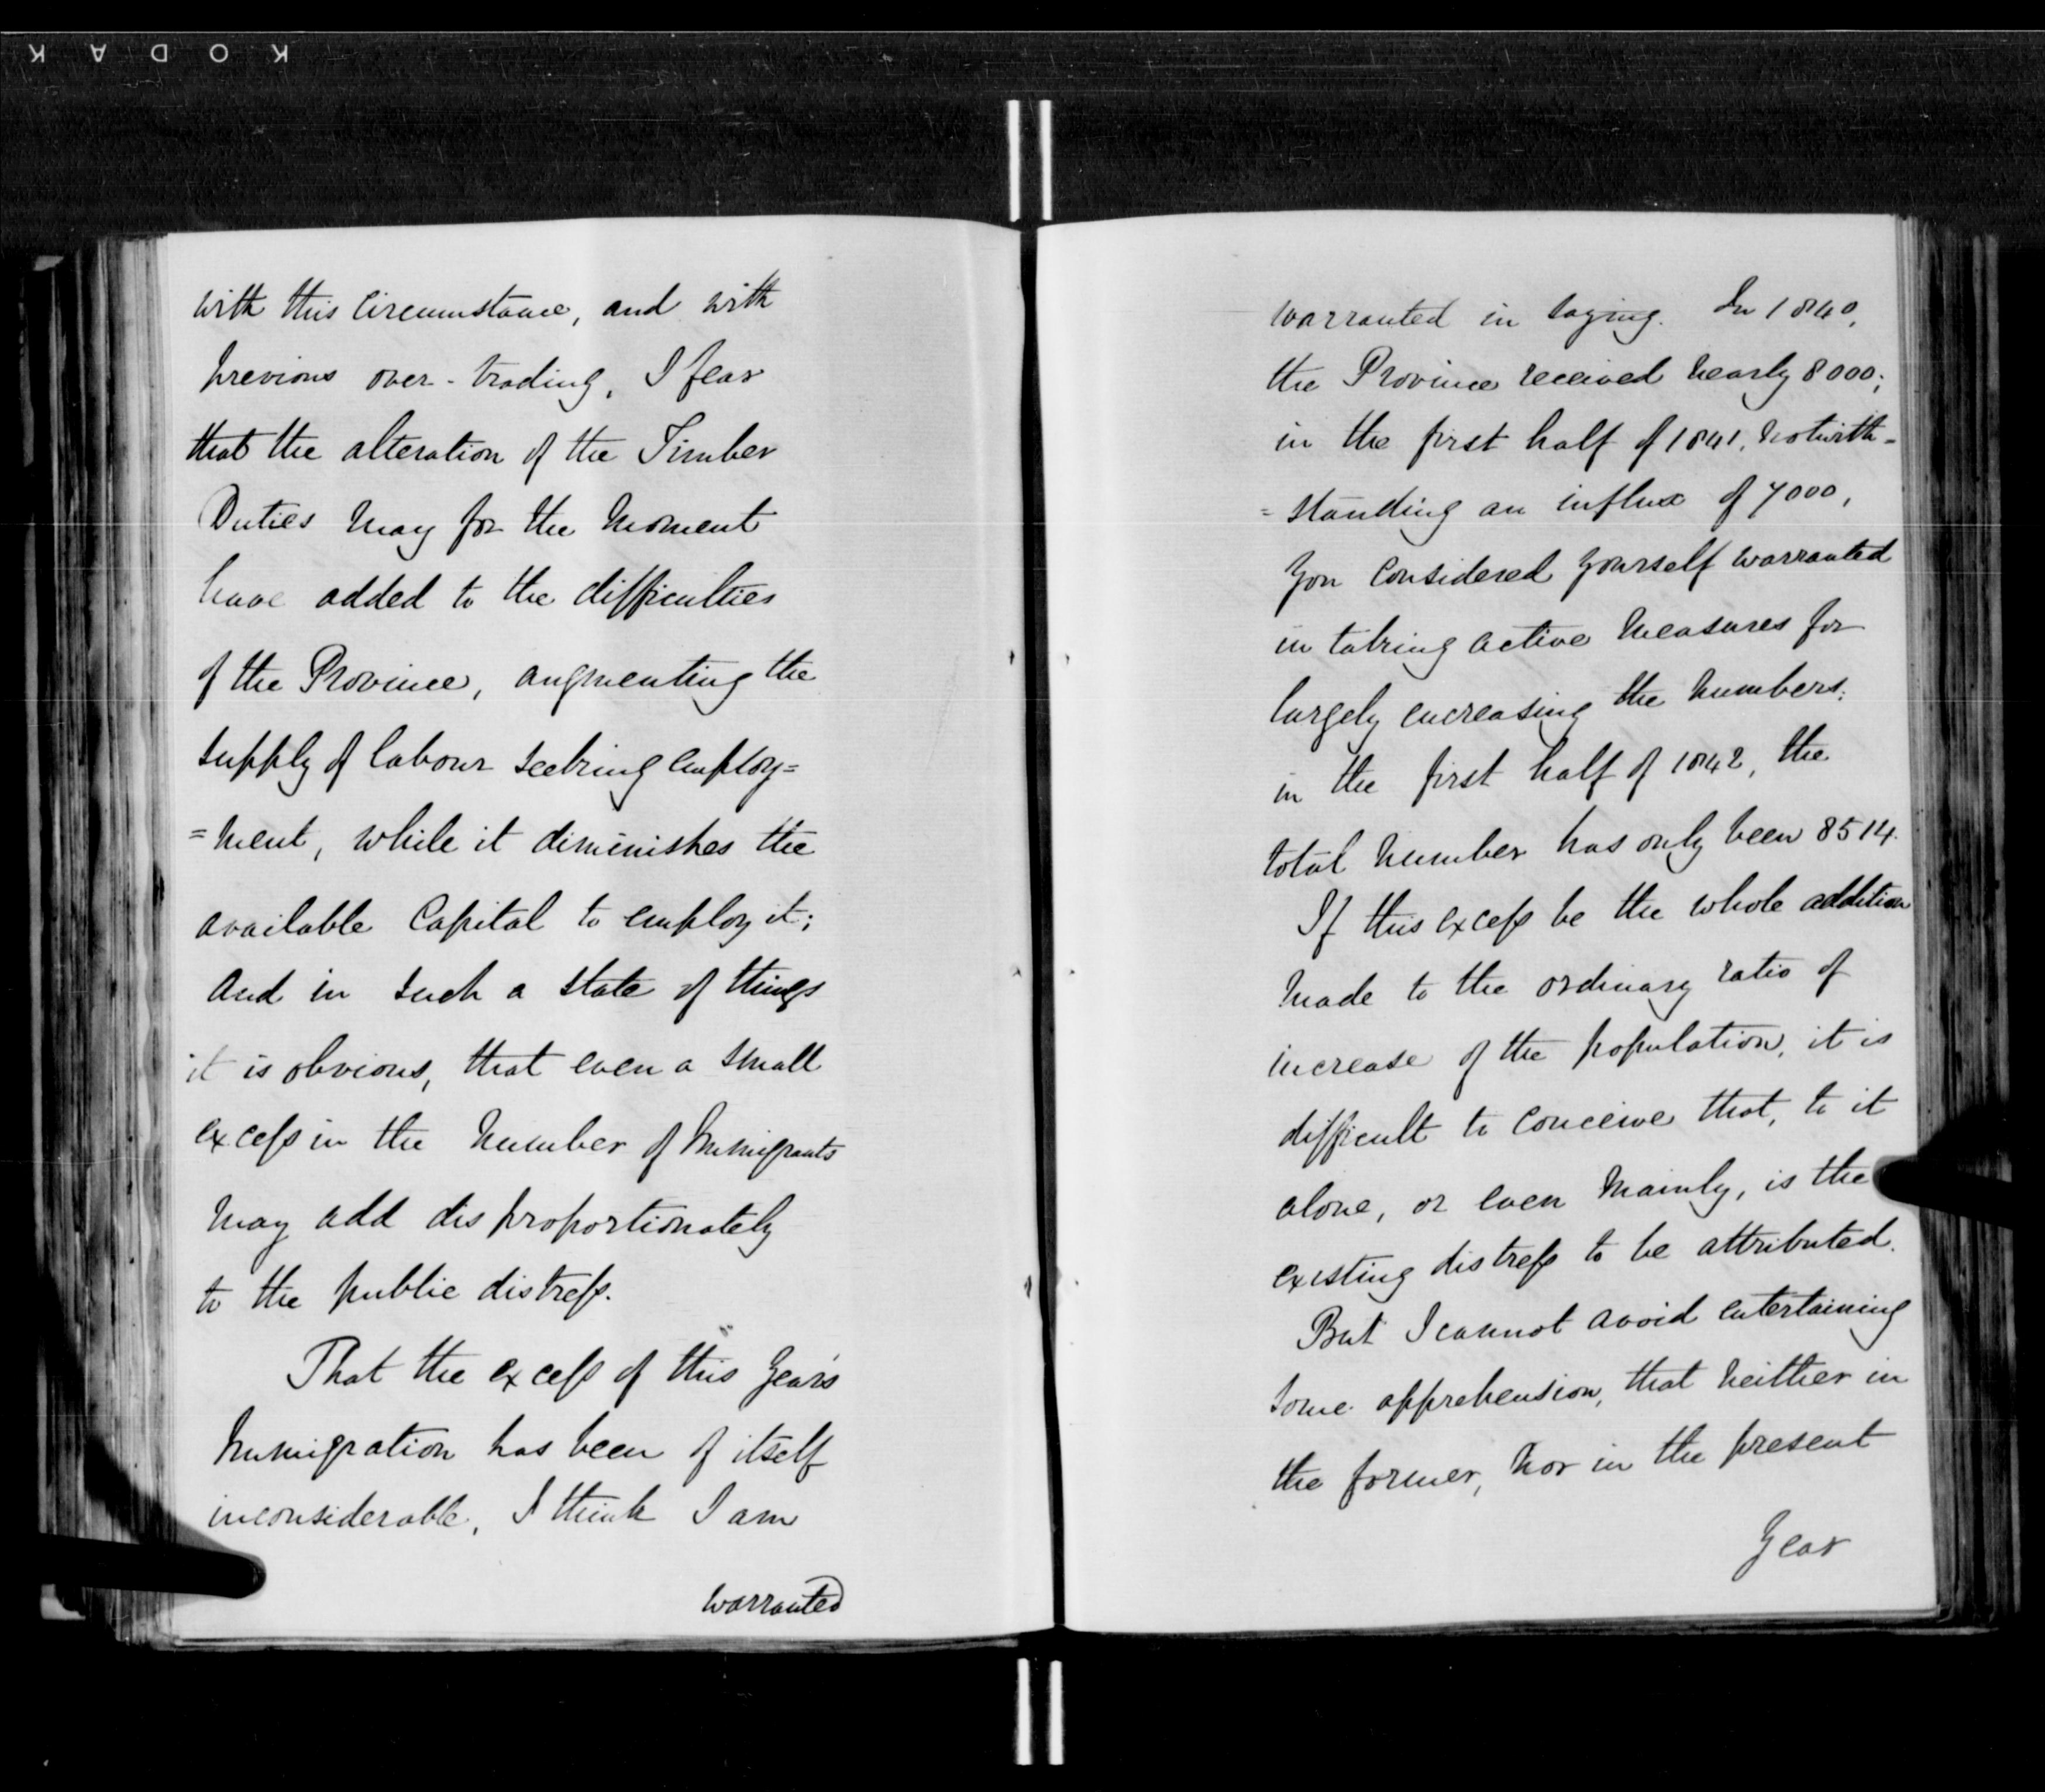 KODAK
with this Circumstance, and with
previous over-trading, I fear
that the alteration of the Timber
Duties may for the moment
have added to the difficulties
of the Province, augmenting the
supply of labour seeking employ=
=ment, while it diminishes the
available Capital to employ it;
and in such a state of things
it is obvious, that even a small
excess in the number of Immigrants
may add disproportionately
to the public distress.
That the excess of this Year's
Immigration has been of itself
inconsiderable, I think I am
warranted
warranted in saying. In 1840,
the Province received nearly 8000;
in the first half of 1841, notwith-
=standing an influx of 7000,
you considered yourself warranted
in taking active measures for
largely encreasing the numbers;
in the first half of 1842, the
total number has only been 8514.
If this excess be the whole addition
made to the ordinary ratio of
increase of the population, it is
difficult to conceive that, to it
alone, or even mainly, is the
existing distress to be attributed.
But I cannot avoid entertaining
some apprehension, that neither in
the former, nor in the present
Year